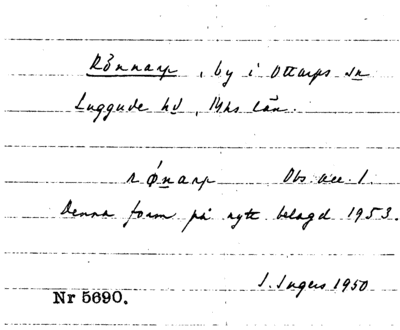 Rönnarp, by i Ottarps sn
Luggude hd, Mhs län.
rǿnarp Obs. acc. 1.
Denna form på nytt belagd 1953.
I. Ingers 1950
Nr 5690.